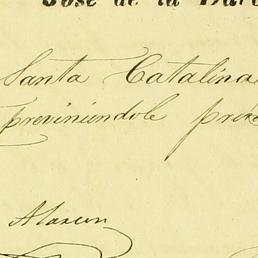 José de la Bar
Santa Catalina
previniendole
Alarcon